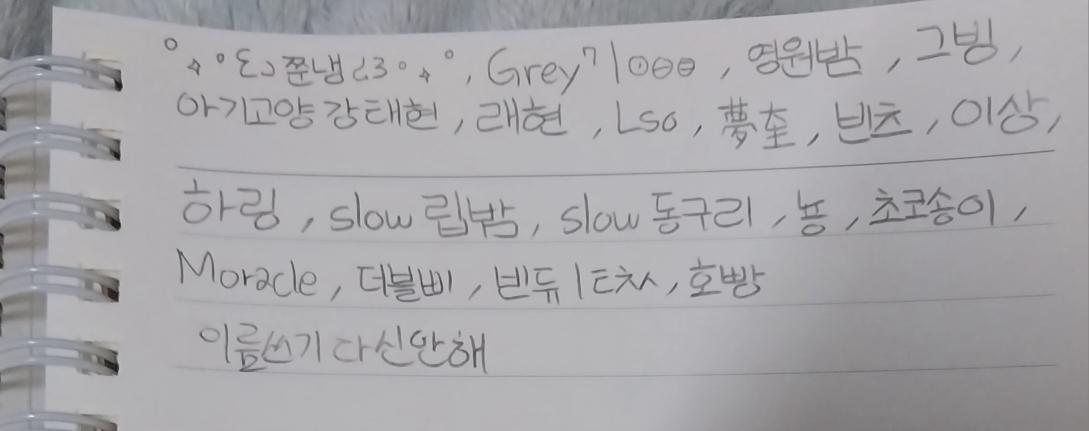 °˖°ԑ૭쭌냅૮з°˖°, Grey가1000, 영원밤, 그빙,
아기고양강태현, 래현, Lso, 夢奎, 빈츠, 이상,
하링, slow립밤, slow동구리, 뇽, 초코송이,
Moracle, 더블삐, 빈듀, 호빵
이름쓰기 다신안해